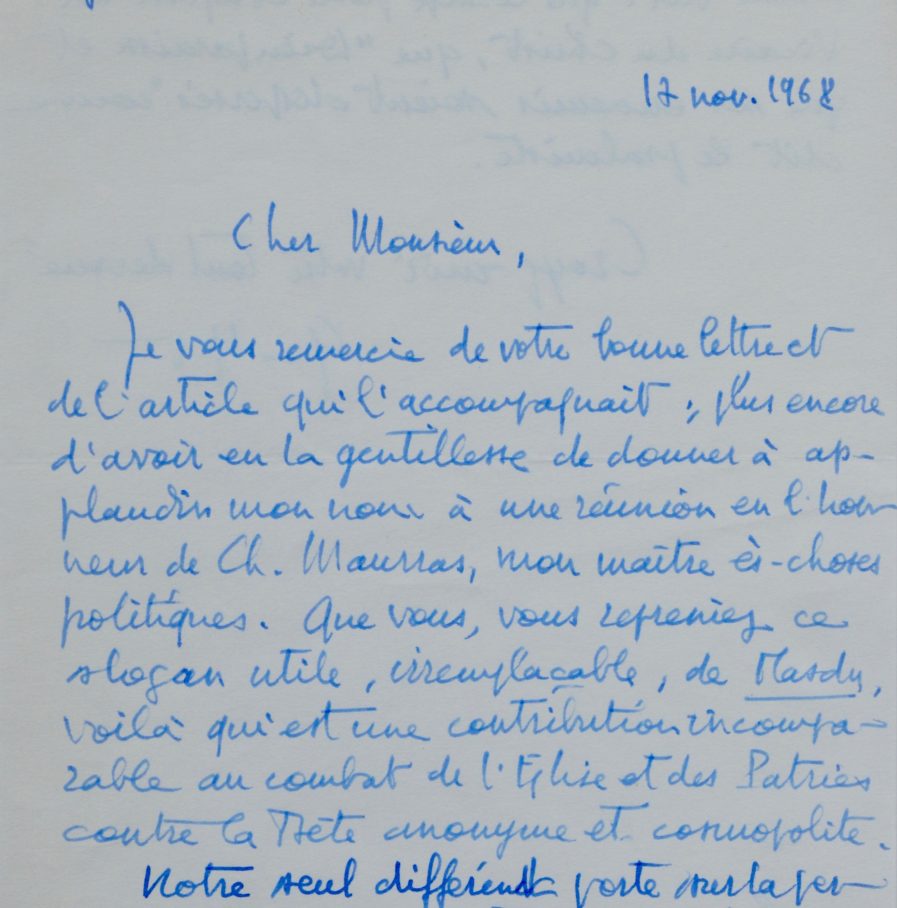 17 nov. 1968
Cher Monsieur,
Je vous remercie de votre bonne lettre et
de l'article qui l'accompagnait ; plus encore
d'avoir eu la gentillesse de donner à ap-
plaudir mon nom à une réunion en l'hon-
neur de Ch. Maurras, mon maître ès-choses
politiques. Que vous, vous repreniez ce
slogan utile, irremplaçable, de Masdu,
voilà qui est une contribution incompa-
rable au combat de l'Eglise et des Patries
contre la Bête anonyme et cosmopolite.
Notre seul différend porte sur la per-